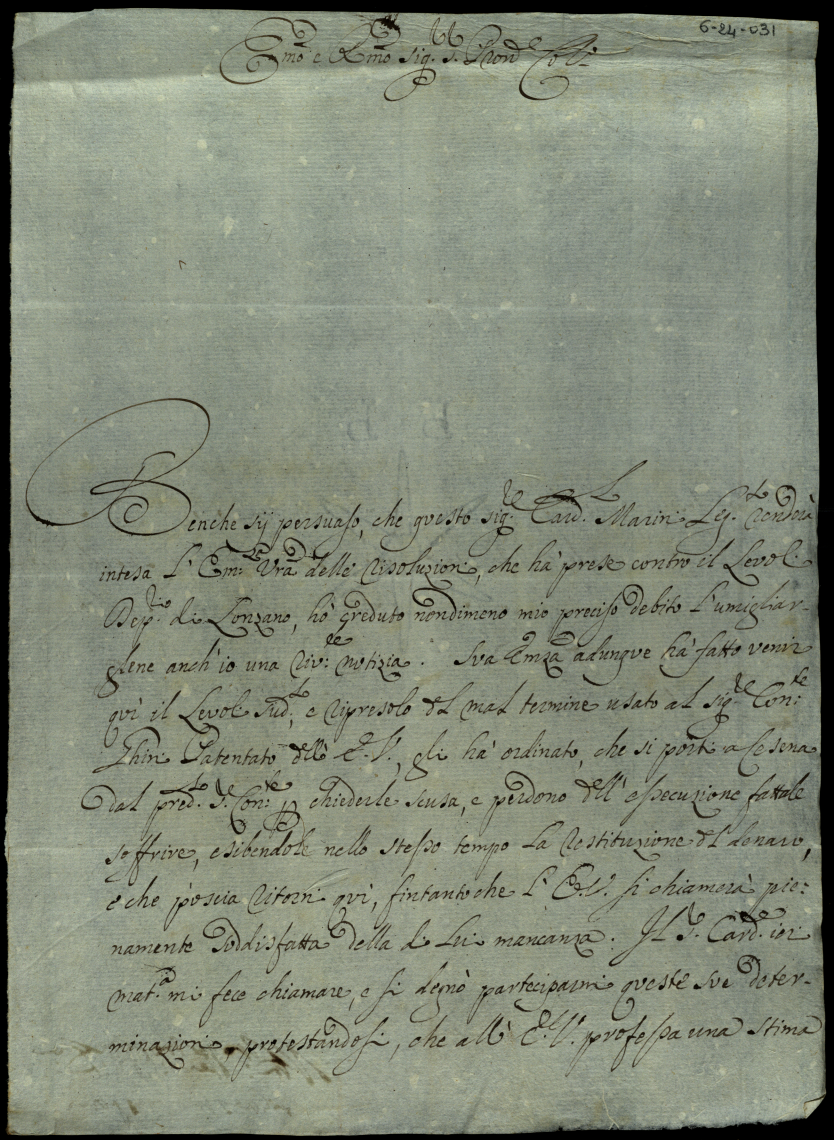 6-24-031
Em.mo e R.mo Sig.r S.r P.ron Col.
Benche sij persuaso, che questo Sig.re Card.l Marini Leg.to renderà
intesa l'Em.za Vra delle risoluzioni, che hà prese contro il Levoli
Dep.rio di Lonzano, hò creduto nondimeno mio preciso debito l'umigliar-
glene anch'io una riv.te notizia. Sua Emza adunque hà fatto venir
quì il Levoli sud.to, e ripresolo del mal termine usato al Sig.re Con:te
Ghini Patentato dell' E.V., gli hà ordinato, che si porti a Cesena
dal pred.to S. Con:te p chiederle scusa, e perdono dell'essecuzione fattale
soffrire, esibendole nello stesso tempo la restituzione del denaro,
e che poscia ritorni quì, fintanto che l'E.V. si chiamerà pie:
namente soddisfatta della di lui mancanza. Il S. Card.e ieri
mat.a mi fece chiamare, e si degnò participarmi queste sue deter-
minazioni, protestandosi, che all' E.V. professa una stima